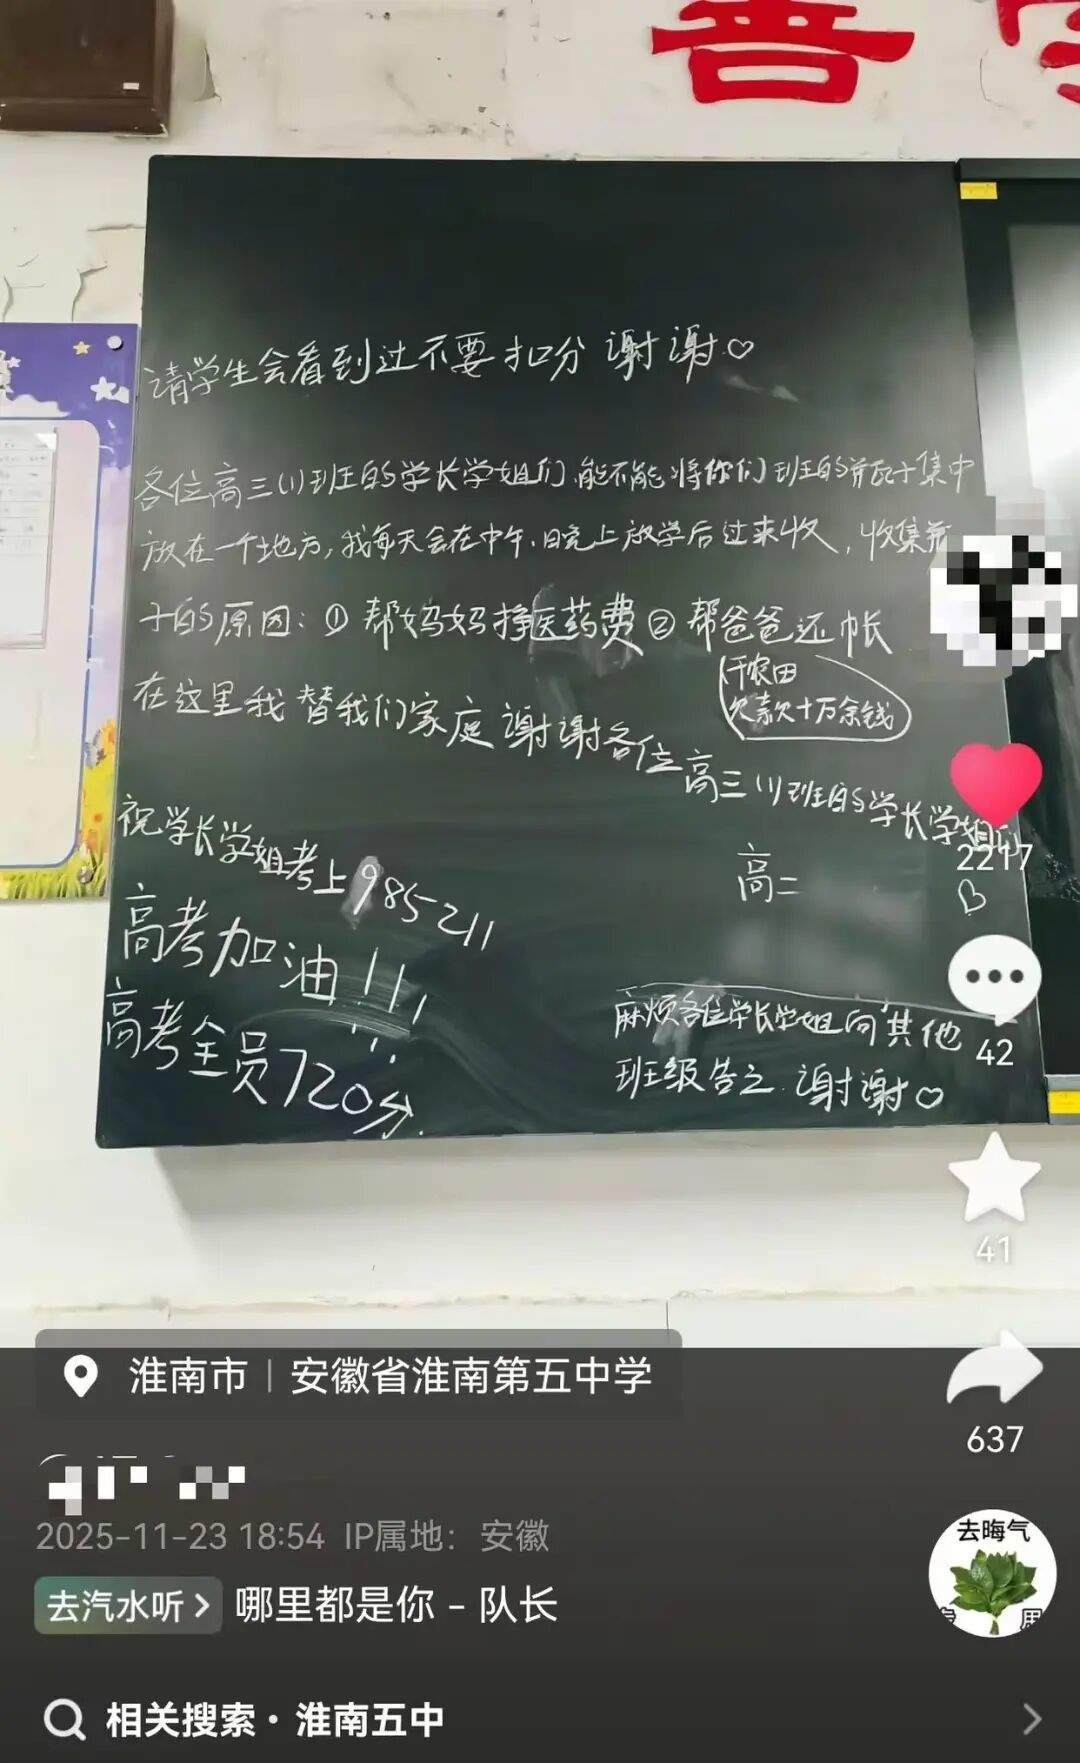 请学生会看到过不要扣分 谢谢♡
各位高三(1)班的学长学姐们,能不能将你们班的瓶子集中
放在一个地方,我每天会在中午.晚上放学后过来收,收集瓶
子的原因:①帮妈妈挣医药费②帮爸爸还帐
(干农田
欠款十万余钱)
在这里我替我们家庭谢谢各位高三(1)班的学长学姐们
高二
祝学长学姐考上985211
高考加油!!!
高考全员720分.
麻烦各位学长学姐向其他
班级告之.谢谢♡
2217
42
41
637
淮南市|安徽省淮南第五中学
2025-11-23 18:54 IP属地:安徽
去汽水听 > 哪里都是你 - 队长
去晦气
相关搜索·淮南五中